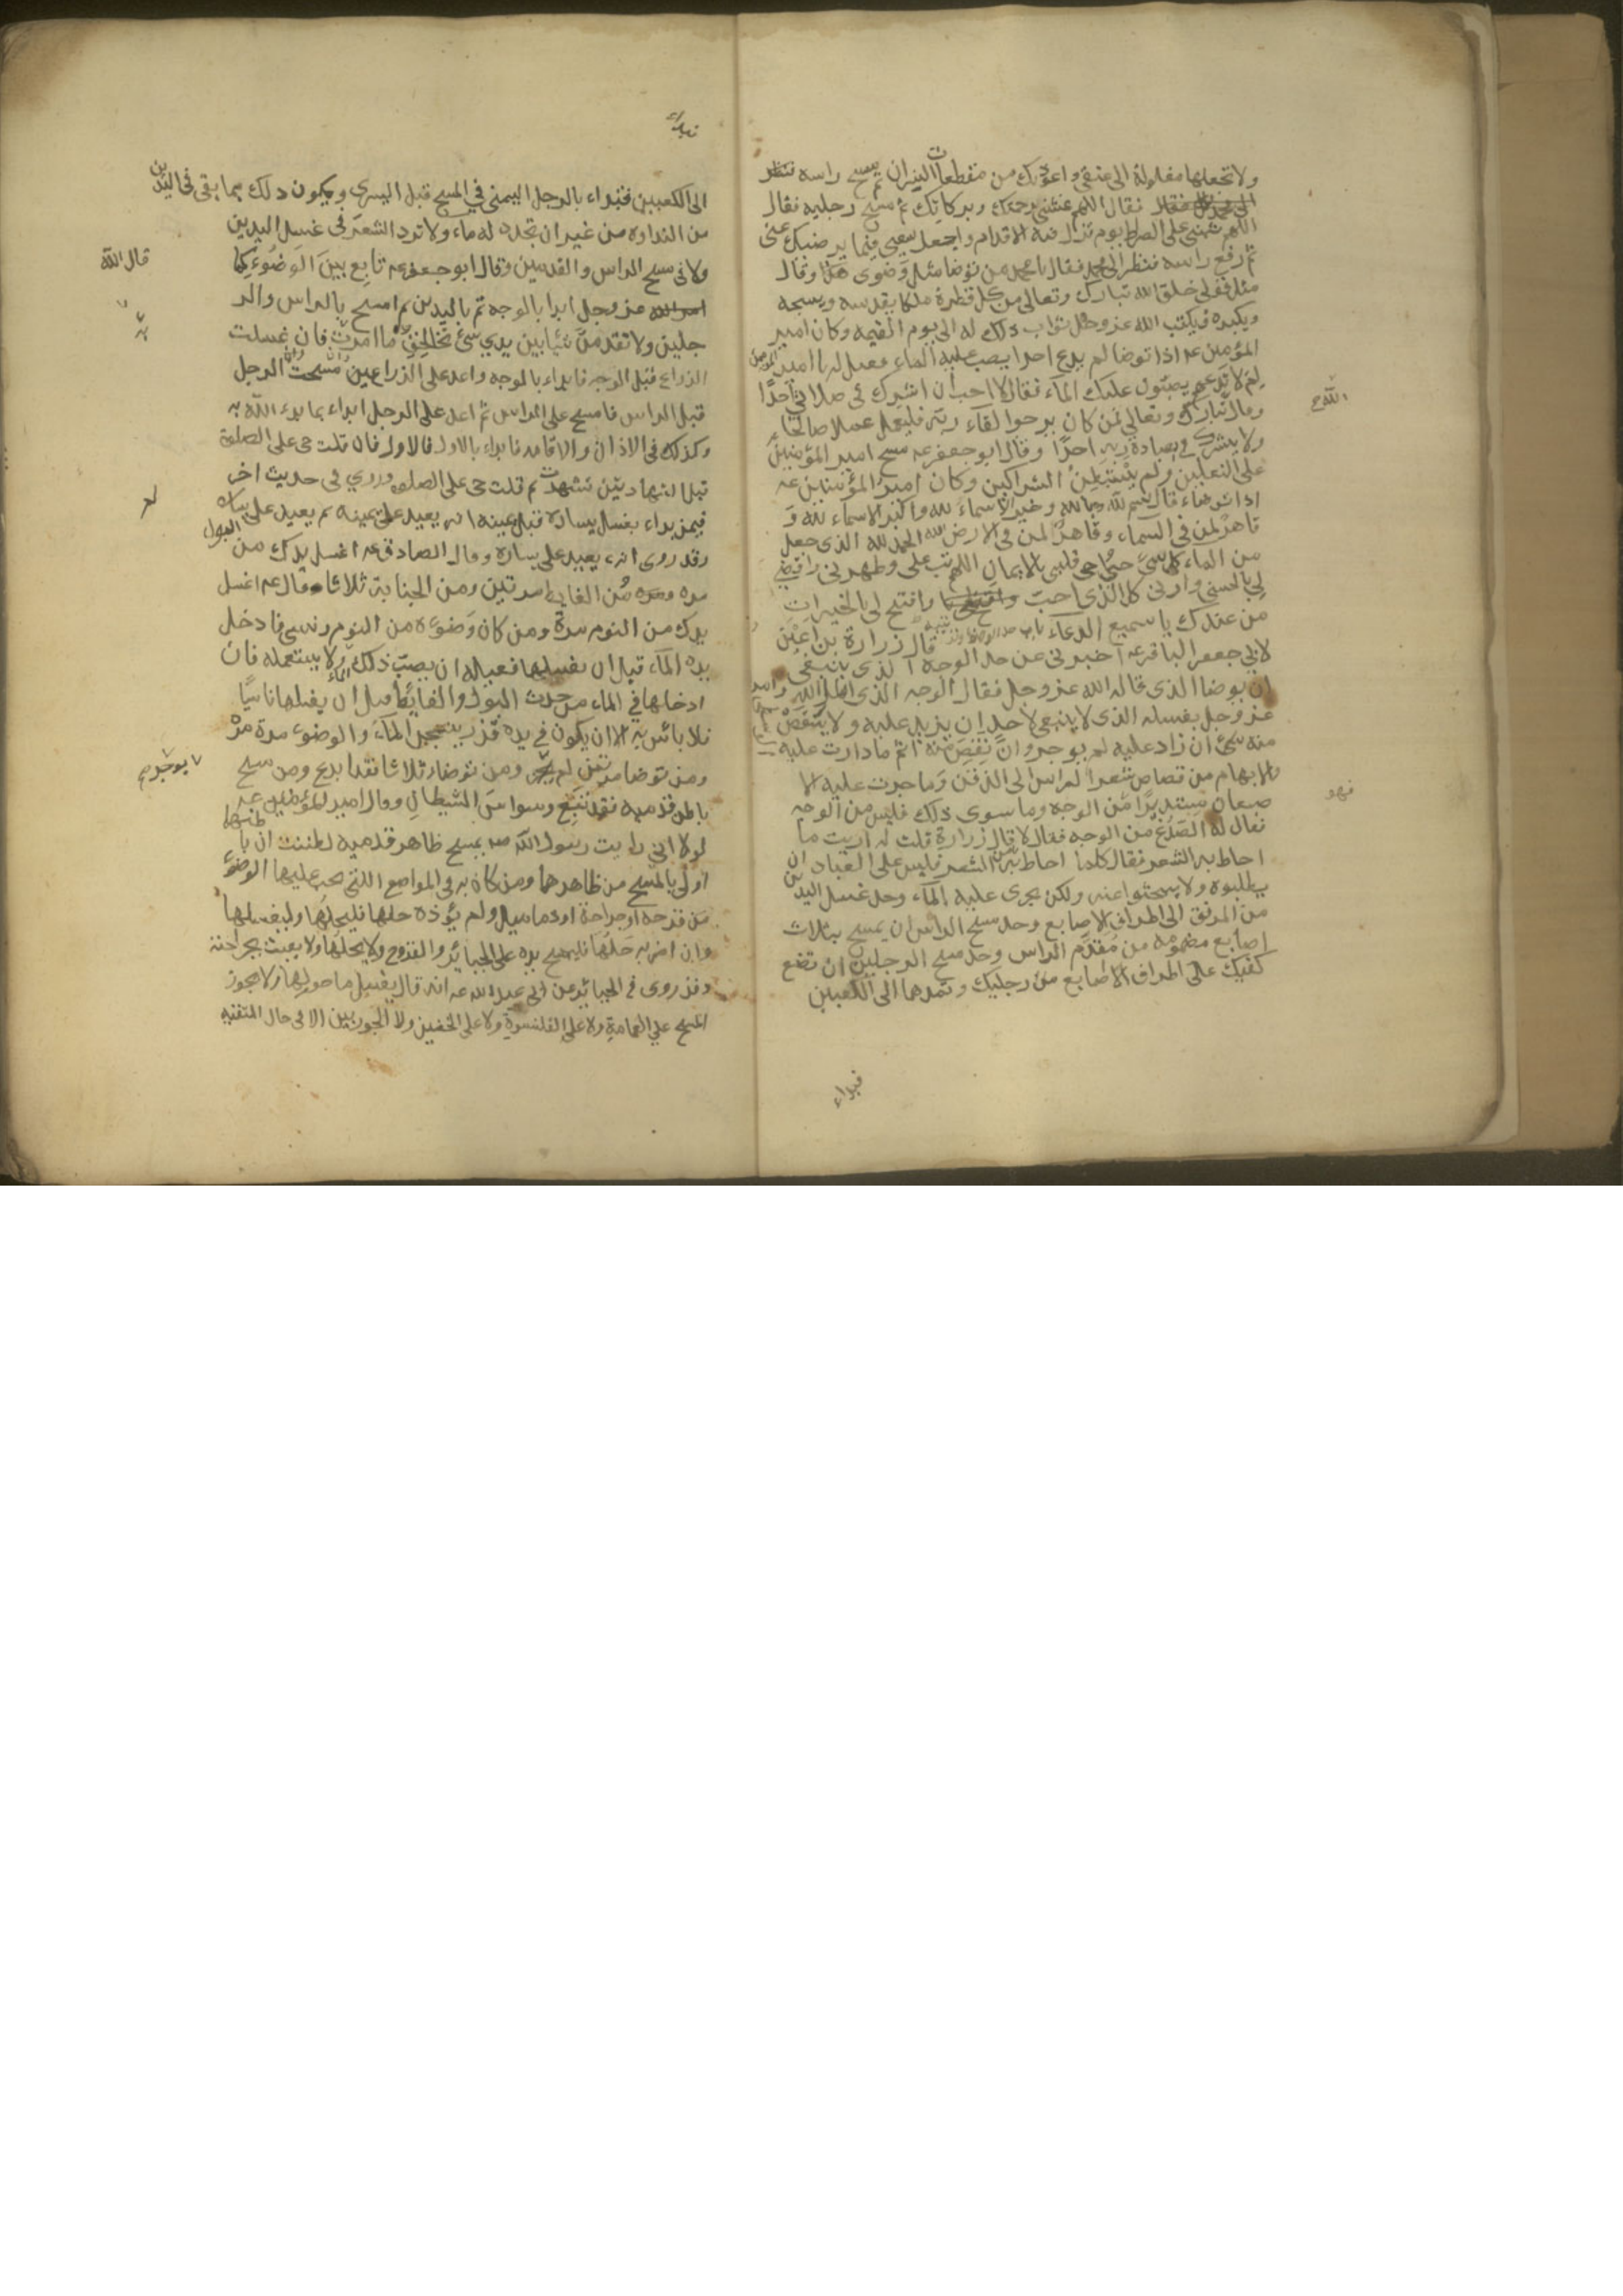 ولا تجعلها مغلولة الى عنقي واعوذ بك من مقطعات النيران ثم مسح راسه فنظر
الى محمد فقال فقال اللهم غشني رحمتك وبركاتك ثم مسح رجليه فقال
اللهم ثبتني على الصراط يوم تزل فيه الاقدام واجعل سعيي فيما يرضيك عني
ثم رفع راسه فنظر الى محمد فقال يا محمد من توضا مثل وضوى هذا وقال
مثل قولى خلق الله تبارك وتعالى من كل قطرة ملكا يقدسه ويسبحه
ويكبره فيكتب الله عز وجل ثواب ذلك له الى يوم القيمه وكان امير
المؤمنين عه اذا توضا لم يدع احدا يصب عليه الماء فقيل له يا امير المؤمنين
لم لا تدعهم يصبون عليك الماء فقال لا احب ان اشرك في صلاتي احدًا
وقال تبارك وتعالى فمن كان يرجوا لقاء ربه فليعمل عملا صالحًا
ولا يشرك في بعبادة ربه احدًا وقال ابو جعفر عه مسح امير المؤمنين
على النعلين ولم يستبطن الشراكين وكان امير المؤمنين عه
اذا توضاء قال بسم الله وبالله وخير الاسماء لله واكبر الاسماء لله و
قاهرٌ لمن في السماء وقاهرٌ لمن في الارض لله الحمد لله الذى جعل
من الماء كل شئ حيٍّ واحى قلبي بالايمان اللهم تب على وطهرني واقضِ
لي بالحسنى وارنى كل الذى احب وافتح لي بالخيرات
من عندك يا سميع الدعاء باب حد الوضوء قال زرارة بن اعين
لابي جعفر الباقر عه اخبرني عن حد الوجه الذي ينبغي
ان يوضا الذى قال الله عز وجل فقال الوجه الذى قال الله وامر
عز وجل بغسله الذى لا ينبغى لاحد ان يزيد عليه ولا ينقص
منه شئ ان زاد عليه لم يوجر وان نقص منه اثم ما دارت عليه
والابهام من قصاص شعر الراس الى الذقن وما جرت عليه الا
صبعان مستديرًا من الوجه وما سوى ذلك فليس من الوجه
فقال له الصدغ من الوجه فقال لا قال زرارة قلت له اريت ما
احاط به الشعر فقال كلما احاط به من الشعر فليس على العباد ان
يطلبوه ولا يبحثوا عنه ولكن يجرى عليه الماء وحد غسل اليدين
من المرفق الى اطراف الاصابع وحد مسح الراس ان يمسح بثلاث
اصابع مضمومه من مقدم الراس وحد مسح الرجلين ان تضع
كفيك على اطراف الاصابع من رجليك وتمدهما الى الكعبين
فبداء
الله
فهو
الى الكعبين فتبداء بالرجل اليمنى في المسح قبل اليسرى ويكون ذلك بما بقى في اليدين
من النداوه من غير ان تجدد له ماء ولا ترد الشعر في غسل اليدين
ولا في مسح الراس والقدمين وقال ابو جعفر عه تابع بين الوضوء كما
قال الله
امر الله عز وجل ابدا بالوجه ثم باليدين ثم امسح بالراس والر
جلين ولا تقدمن شيًا بين يدي شئ تخالف ما امرت به فان غسلت
الذراع قبل الوجه فابداء بالوجه واعد على الذراعين وان مسحت الرجل
قبل الراس فامسح على الراس ثم اعد على الرجل ابداء بما بدء الله به
وكذلك فى الاذان والاقامه فابداء بالاول فالاول فان قلت حى على الصلوة
قبل الشهادتين تشهدت ثم قلت حى على الصلوه وروي فى حديث اخر
فيمن بداء بغسل يساره قبل يمينه انه يعيد على يمينه ثم يعيد على يساره
وقد روى انه يعيد على يساره وقال الصادق عه اغسل يدك من البول
مره ومن الغايط مرتين ومن الجنابة ثلاثا وقال عه اغسل
يدك من النوم مرة ومن كان وضوءه من النوم ونسى فادخل
يده الماء قبل ان يغسلها فعليه ان يصب ذلك الماء ولا يستعمله فان
ادخلها في الماء من حدث البول والغائط قبل ان يغسلها ناسيًا
فلا بأس به الا ان يكون في يده قذر ينجس الماء والوضوء مرة مرة
ومن توضا مرتين لم يوجر ومن توضاء ثلاثا فقد ابدع ومن مسح
باطن قدميه فقد تبع وسواس الشيطان وقال امير المؤمنين عه
لولا اني رايت رسول الله صه يمسح ظاهر قدميه لظننت ان باطنهما
اولى بالمسح من ظاهرهما ومن كان به في المواضع التي يجب عليها الوضوء
من قرحه او جراحة او دماميل ولم يؤذه حلها فليحلها وليغسلها
وان اضر به حلها فليمسح يده على الجبائر والقروح ولا يحلها ولا يعبث بجراحته
وقد روى في الجبائر عن ابي عبد الله عه انه قال يغسل ما حولها ولا يجوز
المسح على العمامة ولا على القلنسوة ولا على الخفين ولا الجوربين الا فى حال التقيه